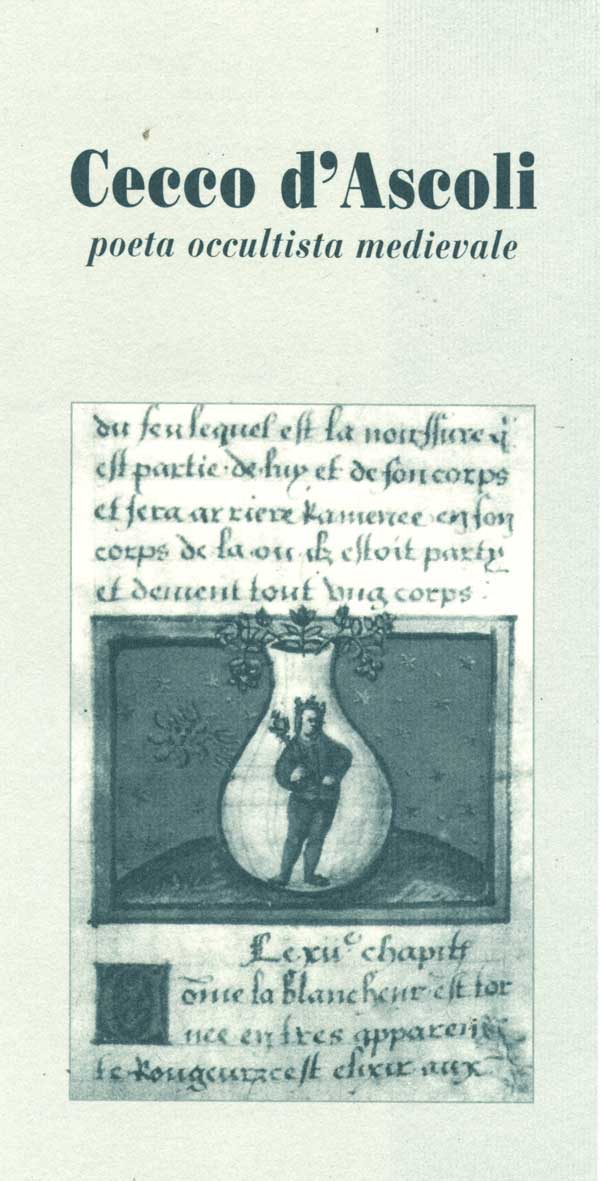 Cecco d'Ascoli
poeta occultista medievale
du feu lequel est la nourssure
est partie de luy et de son corps
et sera arriere Ramenee en son
corps de la ou estoit party
et dement tout vng corps
Le xii chapit
ome la blancheur est tor
nee en tres apparen
te Rougeur cest elixir aux